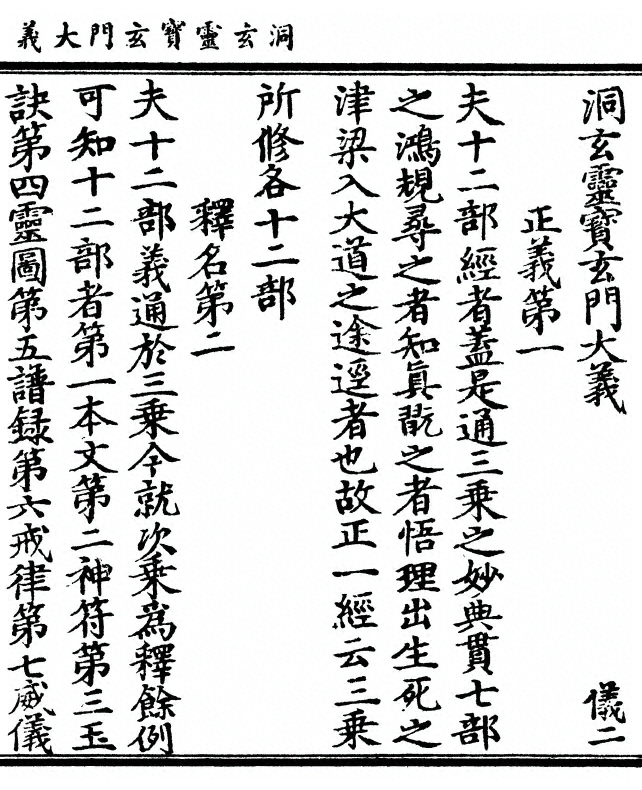 洞玄靈寶玄門大義
洞玄靈寶玄門大義 儀二
正義第一
夫十二部經者蓋是通三乘之妙典貫七部
之鴻規尋之者知眞翫之者悟理出生死之
津梁入大道之途逕者也故正一經云三乘
所修各十二部
釋名第二
夫十二部義通於三乘今就次乘爲釋餘例
可知十二部者第一本文第二神符第三玉
訣第四靈圖第五譜録第六戒律第七威儀